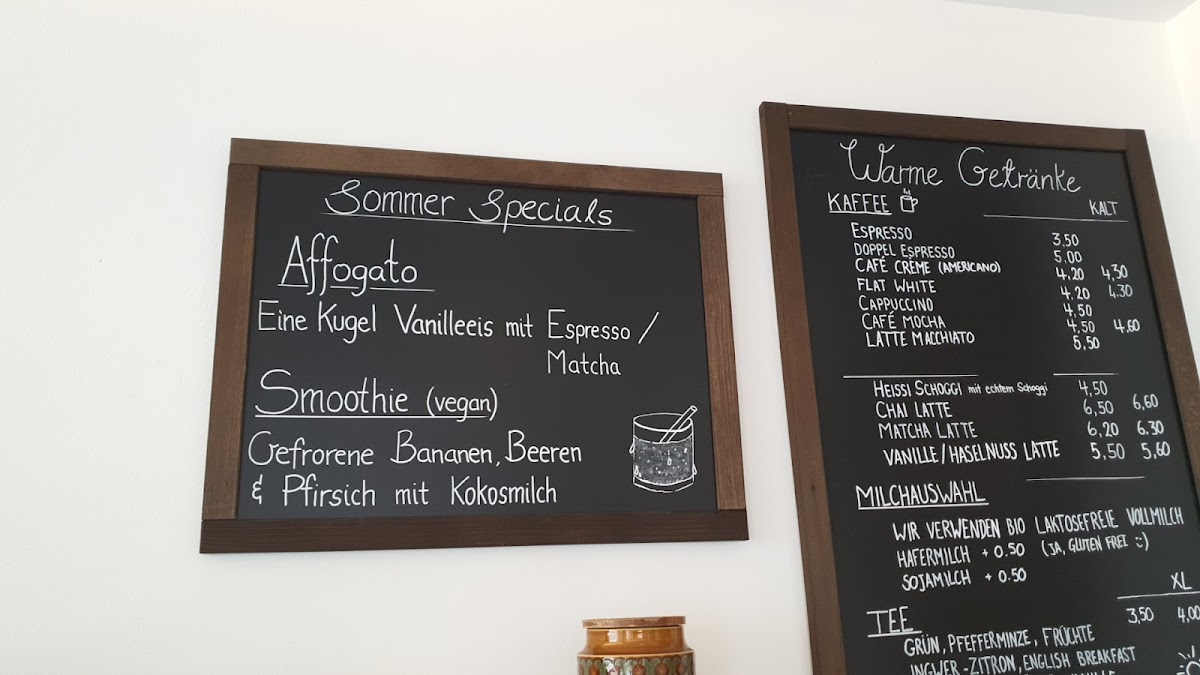 Sommer Specials
Affogato
Eine Kugel Vanilleeis mit Espresso /
Matcha
Smoothie (vegan)
Gefrorene Bananen, Beeren
& Pfirsich mit Kokosmilch
Warme Getränke
KAFFEE KALT
ESPRESSO 3,50
DOPPEL ESPRESSO 5,00
CAFÉ CRÈME (AMERICANO) 4,20 4,30
FLAT WHITE 4.20 4.30
CAPPUCCINO 4,50
CAFÉ MOCHA 4,50 4,60
LATTE MACCHIATO 5,50
HEISSI SCHOGGI mit echtem Schoggi 4,50
CHAI LATTE 6,50 6,60
MATCHA LATTE 6,20 6.30
VANILLE/HASELNUSS LATTE 5,50 5,60
MILCHAUSWAHL
WIR VERWENDEN BIO LAKTOSEFREIE VOLLMILCH
HAFERMILCH + 0.50 (JA, GLUTEN FREI :))
SOJAMILCH + 0.50
XL
TEE 3,50 4,00
GRÜN, PFEFFERMINZE, FRÜCHTE
INGWER-ZITRON, ENGLISH BREAKFAST